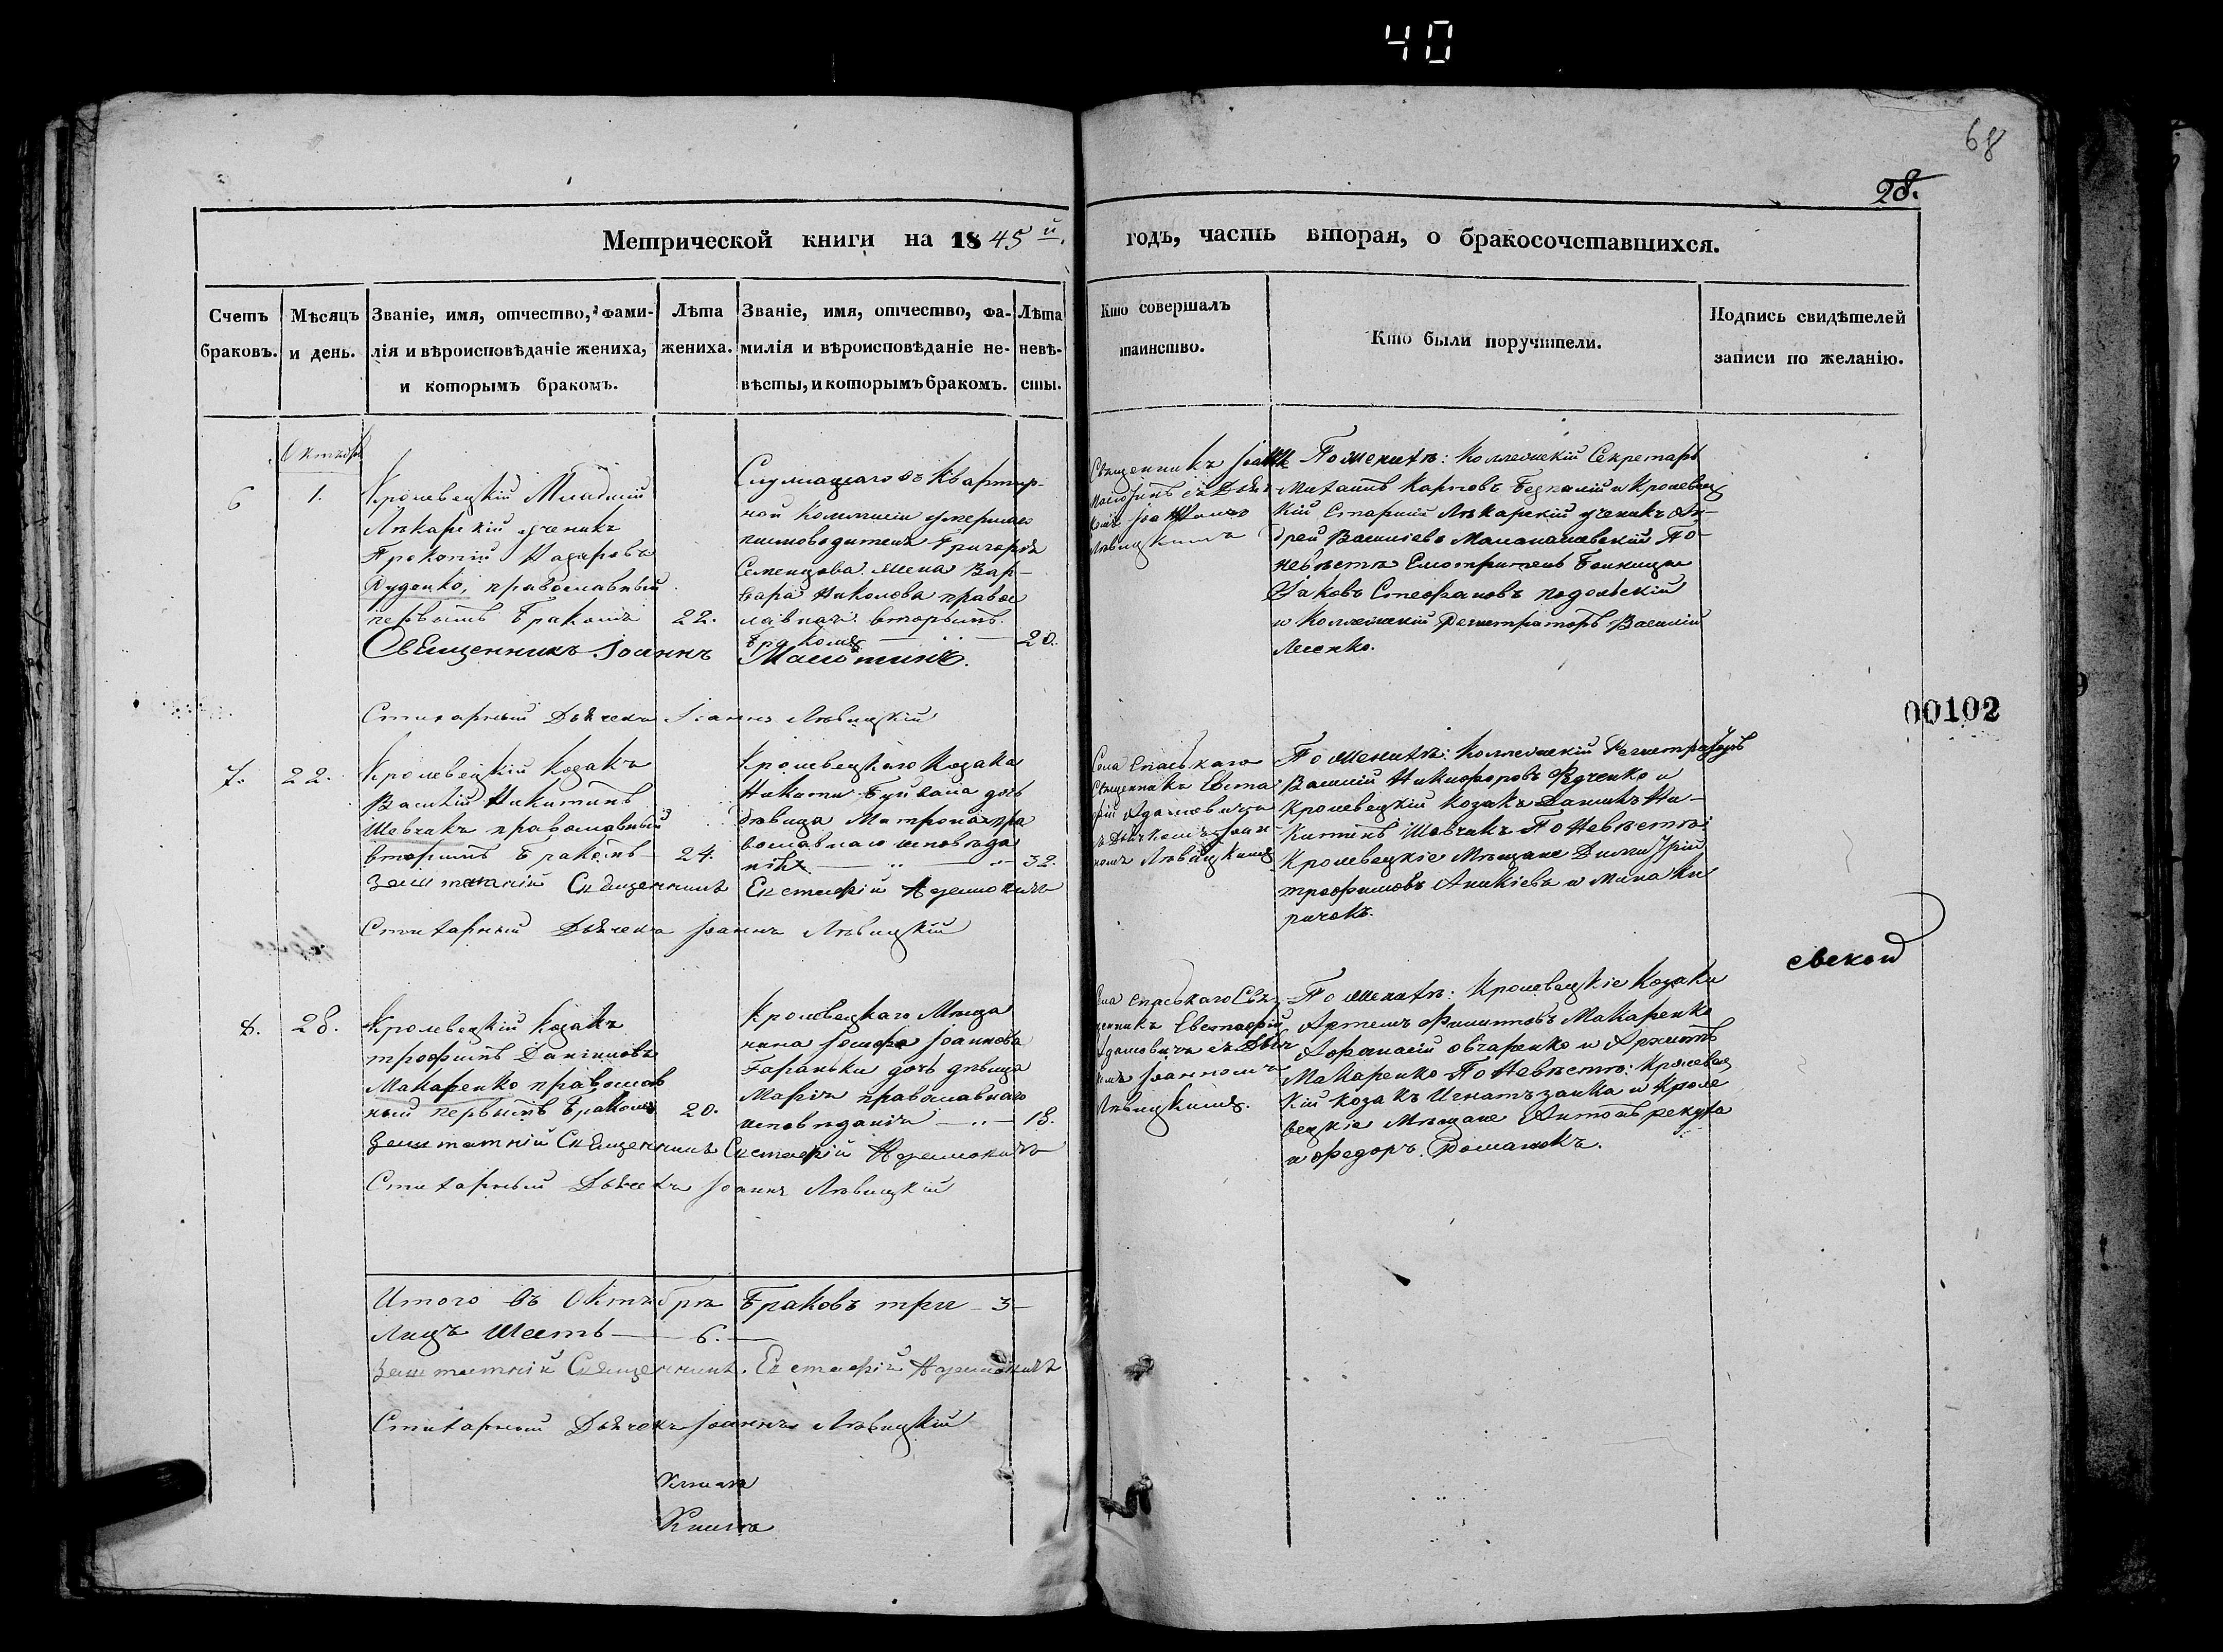 40
68
28.
Метрической книги на 1845й.
годъ, часть вторая, о бракосочетавшихся.
Счетъ браковъ.
Мѣсяцъ и день.
Званіе, имя, отчество, фами-
лія и вѣроисповѣданіе жениха,
и которымъ бракомъ.
Лѣта
жениха.
Званіе, имя, отчество, фа-
милія и вѣроисповѣданіе не-
вѣсты, и которымъ бракомъ.
Лѣта
невѣ-
сты.
Кто совершалъ
таинство.
Кто были поручители.
Подпись свидѣтелей
записи по желанію.
6
Октября
1.
Кролевецкій Младшій
Лѣкарскій ученикъ
Прокопій Назаровъ
Руденко, православный
первымъ бракомъ
22.
Служащаго въ Квартир-
ной Коммисіи умершаго
писмоводителя Григорія
Семенцова жена Вар-
вара православная вторымъ
бракомъ
20.
Священникъ Іоаннъ
Іоанномъ
Лѣвицкимъ
По женихѣ: Коллежскій Секретарь
Михаилъ Карповъ и Кролевец
кій Старшій Лѣкарскій ученикъ Ан-
дрей Василіевъ По
невѣстѣ Смотритель Больницы
Яковъ Стефановъ Подольскій
и Коллежскій Регистраторъ Василій
Лесенко.
Священникъ Іоаннъ
Стихарный Дьячекъ Іоаннъ Лѣвицкій
00102
7.
22.
Кролевецкій Козакъ
Василій Никитинъ
Шевчакъ православный
вторымъ бракомъ
24.
Кролевецкаго Козака
Никиты дочь
дѣвица Матрона пра
вославнаго исповѣда
нія
32.
Села Спаскаго
Священникъ Евста-
фій Адамовичъ
съ Дьячкомъ Іоан
номъ Лѣвицкимъ
По женихѣ: Коллежскій Регистраторъ
Василій Никифоровъ и
Кролевецкій Козакъ Данилъ Ни-
китинъ Шевчакъ По Невѣстѣ:
Кролевецкіе Мѣщане Димитрій
Трофимовъ Аникіевъ и Мина Ки
ричокъ.
Заштатній Священникъ Евстафій Адамовичъ
Стихарный Дьячекъ Іоаннъ Лѣвицкій
8.
28.
Кролевецкій Козакъ
Трофимъ Даніиловъ
Макаренко православ
ный первымъ бракомъ
20.
Кролевецкаго Мѣща
нина Іосифа Іоаннова
дочь дѣвица
Марія православнаго
исповѣданія
18.
Села Спаскаго Свя-
щенникъ Евстафій
Адамовичъ съ Дьяч
комъ Іоанномъ
Лѣвицкимъ.
По женихѣ: Кролевецкіе Козаки
Артемъ Филиповъ Макаренко
Афанасій Овчаренко и Архипъ
Макаренко По Невѣстѣ: Кролевец
кій Козакъ Игнатъ Заика и Кроле
вецкіе Мѣщане Антонъ Рекута
и Федоръ Романокъ.
Заштатній Священникъ Евстафій Адамовичъ
Стихарный Дьячекъ Іоаннъ Лѣвицкій
Итого въ Октябрѣ браковъ три - 3 -
Лицъ шесть — 6. —
Заштатній Священникъ Евстафій Адамовичъ
Стихарный Дьячекъ Іоаннъ Лѣвицкій